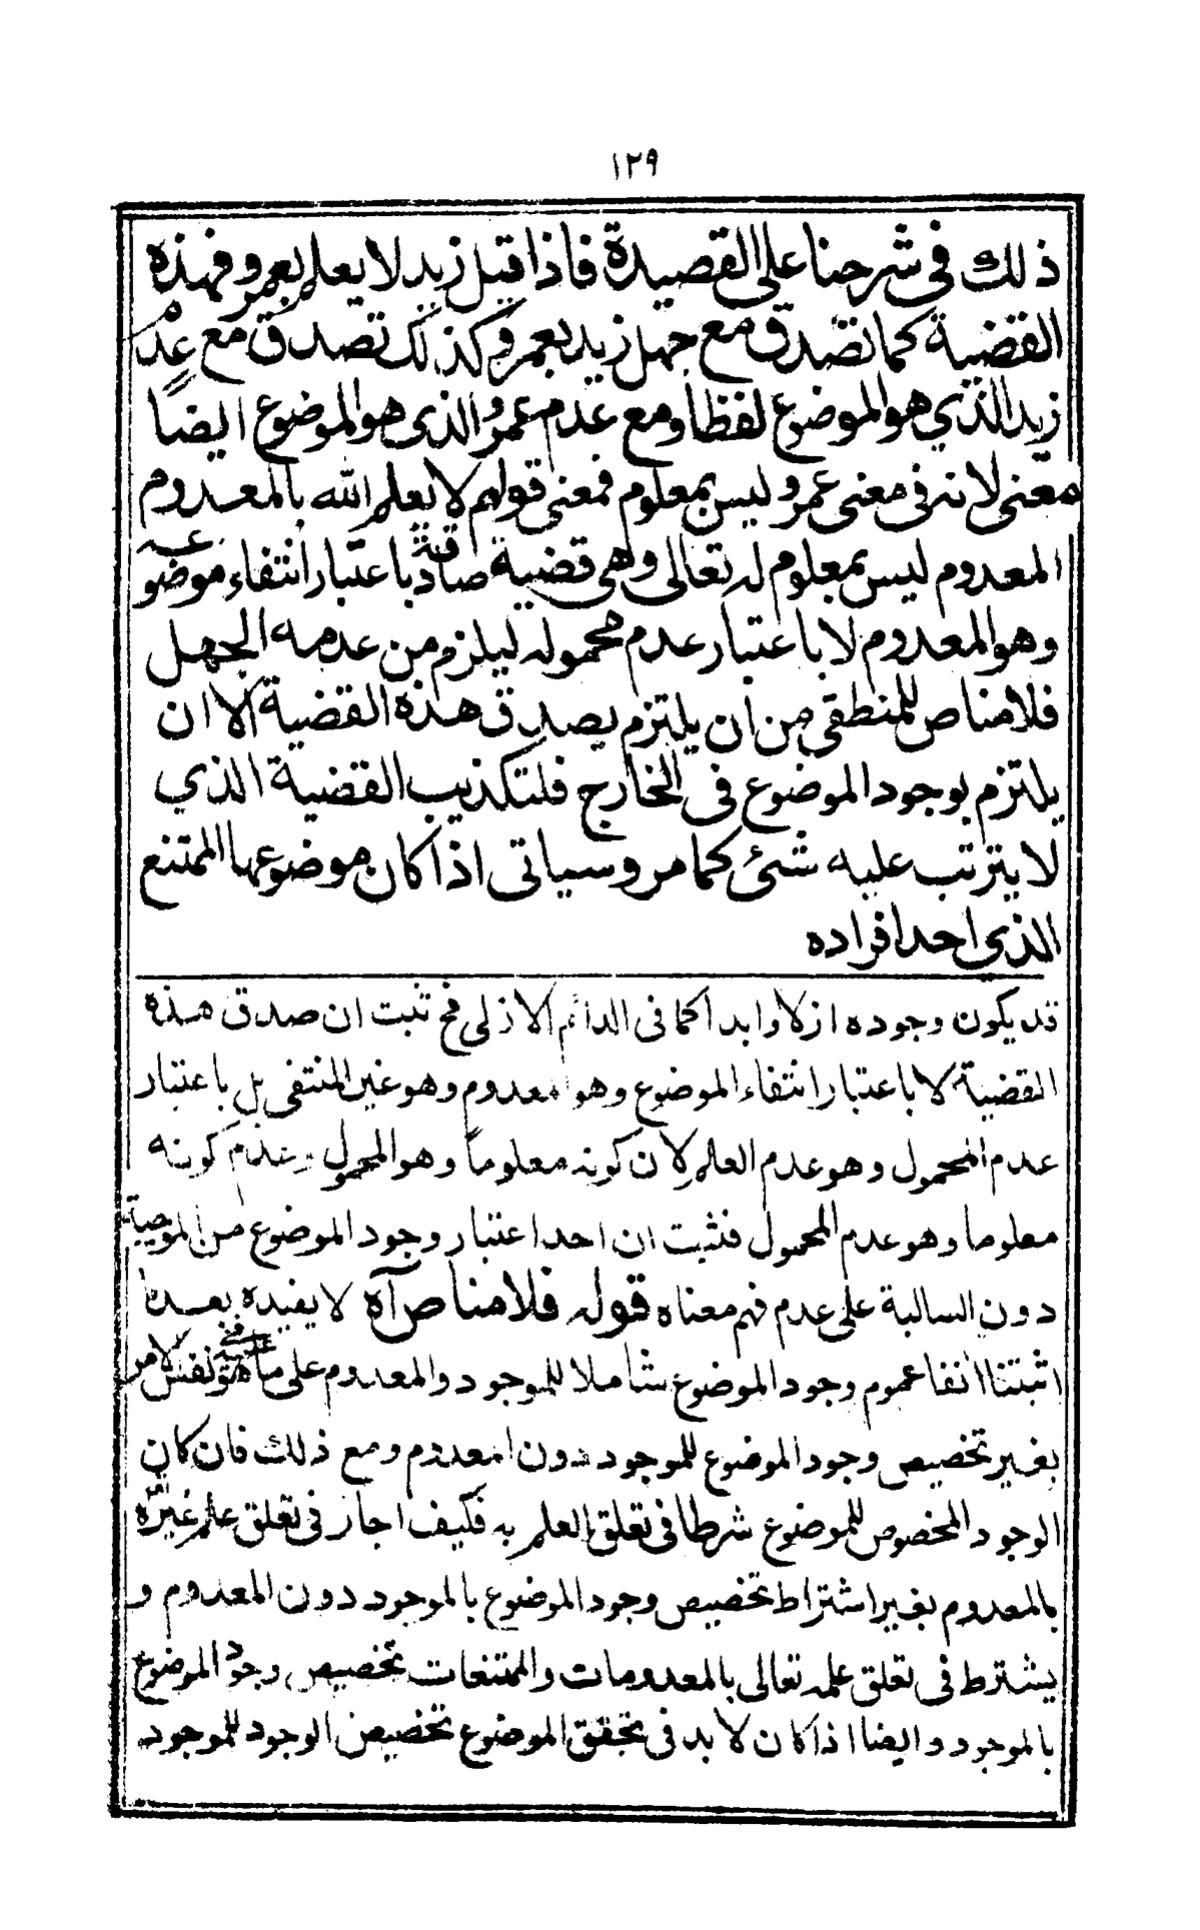 ١٢٩
ذلك فى شرحنا على القصيدة فاذا قيل زيد لا يعلم بعمرو فهذه
القضية كما تصدق مع جهل زيد بعمرو كذلك تصدق مع عدم
زيد الذي هو الموضوع لفظا ومع عدم عمرو الذى هو الموضوع ايضًا
معنى لانه فى معنى عمرو ليس بمعلوم فمعنى قولهم لا يعلم الله بالمعدوم
المعدوم ليس بمعلوم له تعالى وهى قضية صادقة باعتبار انتفاء موضوعه
وهو المعدوم لا باعتبار عدم محموله ليلزم من عدمه الجهل
فلا مناص للمنطقى من ان يلتزم بصدق هذه القضية الا ان
يلتزم بوجود الموضوع فى الخارج فلتكذيب القضية الذي
لا يترتب عليه شئ كما مر وسياتى اذا كان موضوعها الممتنع
الذى احد افراده
قد يكون وجوده ازلا وابدا كما فى الدائم الازلى فح ثبت ان صدق هذه
القضية لا باعتبار انتفاء الموضوع وهو المعدوم وهو غير المنتفى بل باعتبار
عدم المحمول وهو عدم العلم لان كونه معلوماً وهو المحمول وعدم كونه
معلوما وهو عدم المحمول فثبت ان احد اعتبار وجود الموضوع من الموجبة
دون السالبة على عدم فهم معناه قوله فلا مناص آه لا يفيده بعد ما
اثبتنا انفا عموم وجود الموضوع شاملا للموجود والمعدوم على ما هو نفس الامر
بغير تخصيص وجود الموضوع للموجود دون المعدوم ومع ذلك فان كان
الوجود المخصوص للموضوع شرطا فى تعلق العلم به فكيف اجاز فى تعلق علم غيره
بالمعدوم بغير اشتراط تخصيص وجود الموضوع بالموجود دون المعدوم و
يشترط فى تعلق علمه تعالى بالمعدومات والممتنعات تخصيص وجود الموضوع
بالموجود وايضا اذا كان لا بد فى تحقق الموضوع تخصيص الوجود للموجود